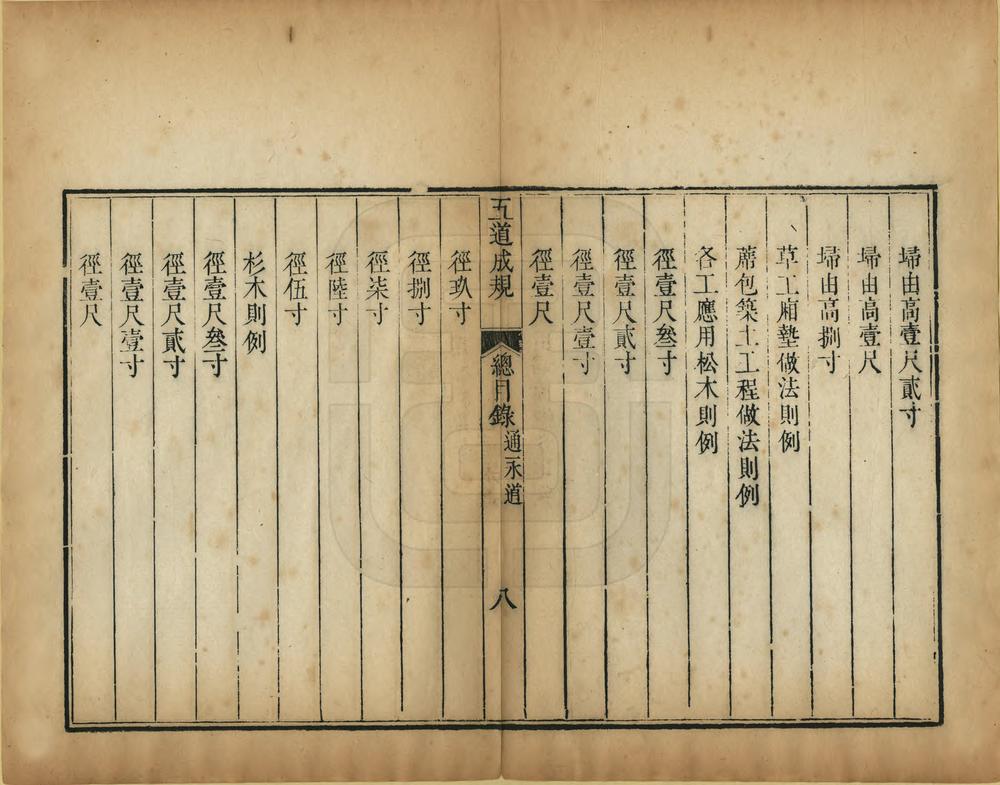 埽由高壹尺貳寸
埽由高壹尺
埽由高捌寸
草工廂墊做法則例
蓆包築土工程做法則例
各工應用松木則例
徑壹尺叄寸
徑壹尺貳寸
徑壹尺壹寸
徑壹尺
五道成規
總目錄
通永道
八
徑玖寸
徑捌寸
徑柒寸
徑陸寸
徑伍寸
杉木則例
徑壹尺叄寸
徑壹尺貳寸
徑壹尺壹寸
徑壹尺